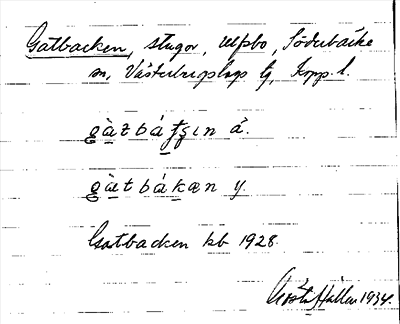 Gatbacken, stugor, Ulfsbo, Söderbärke
sn, Västerbergslags tg, Kopp. l.
gàtbátʃın ä.
gàtbákæn y.
Gatbacken kb 1928.
Gösta Hallén 1934.